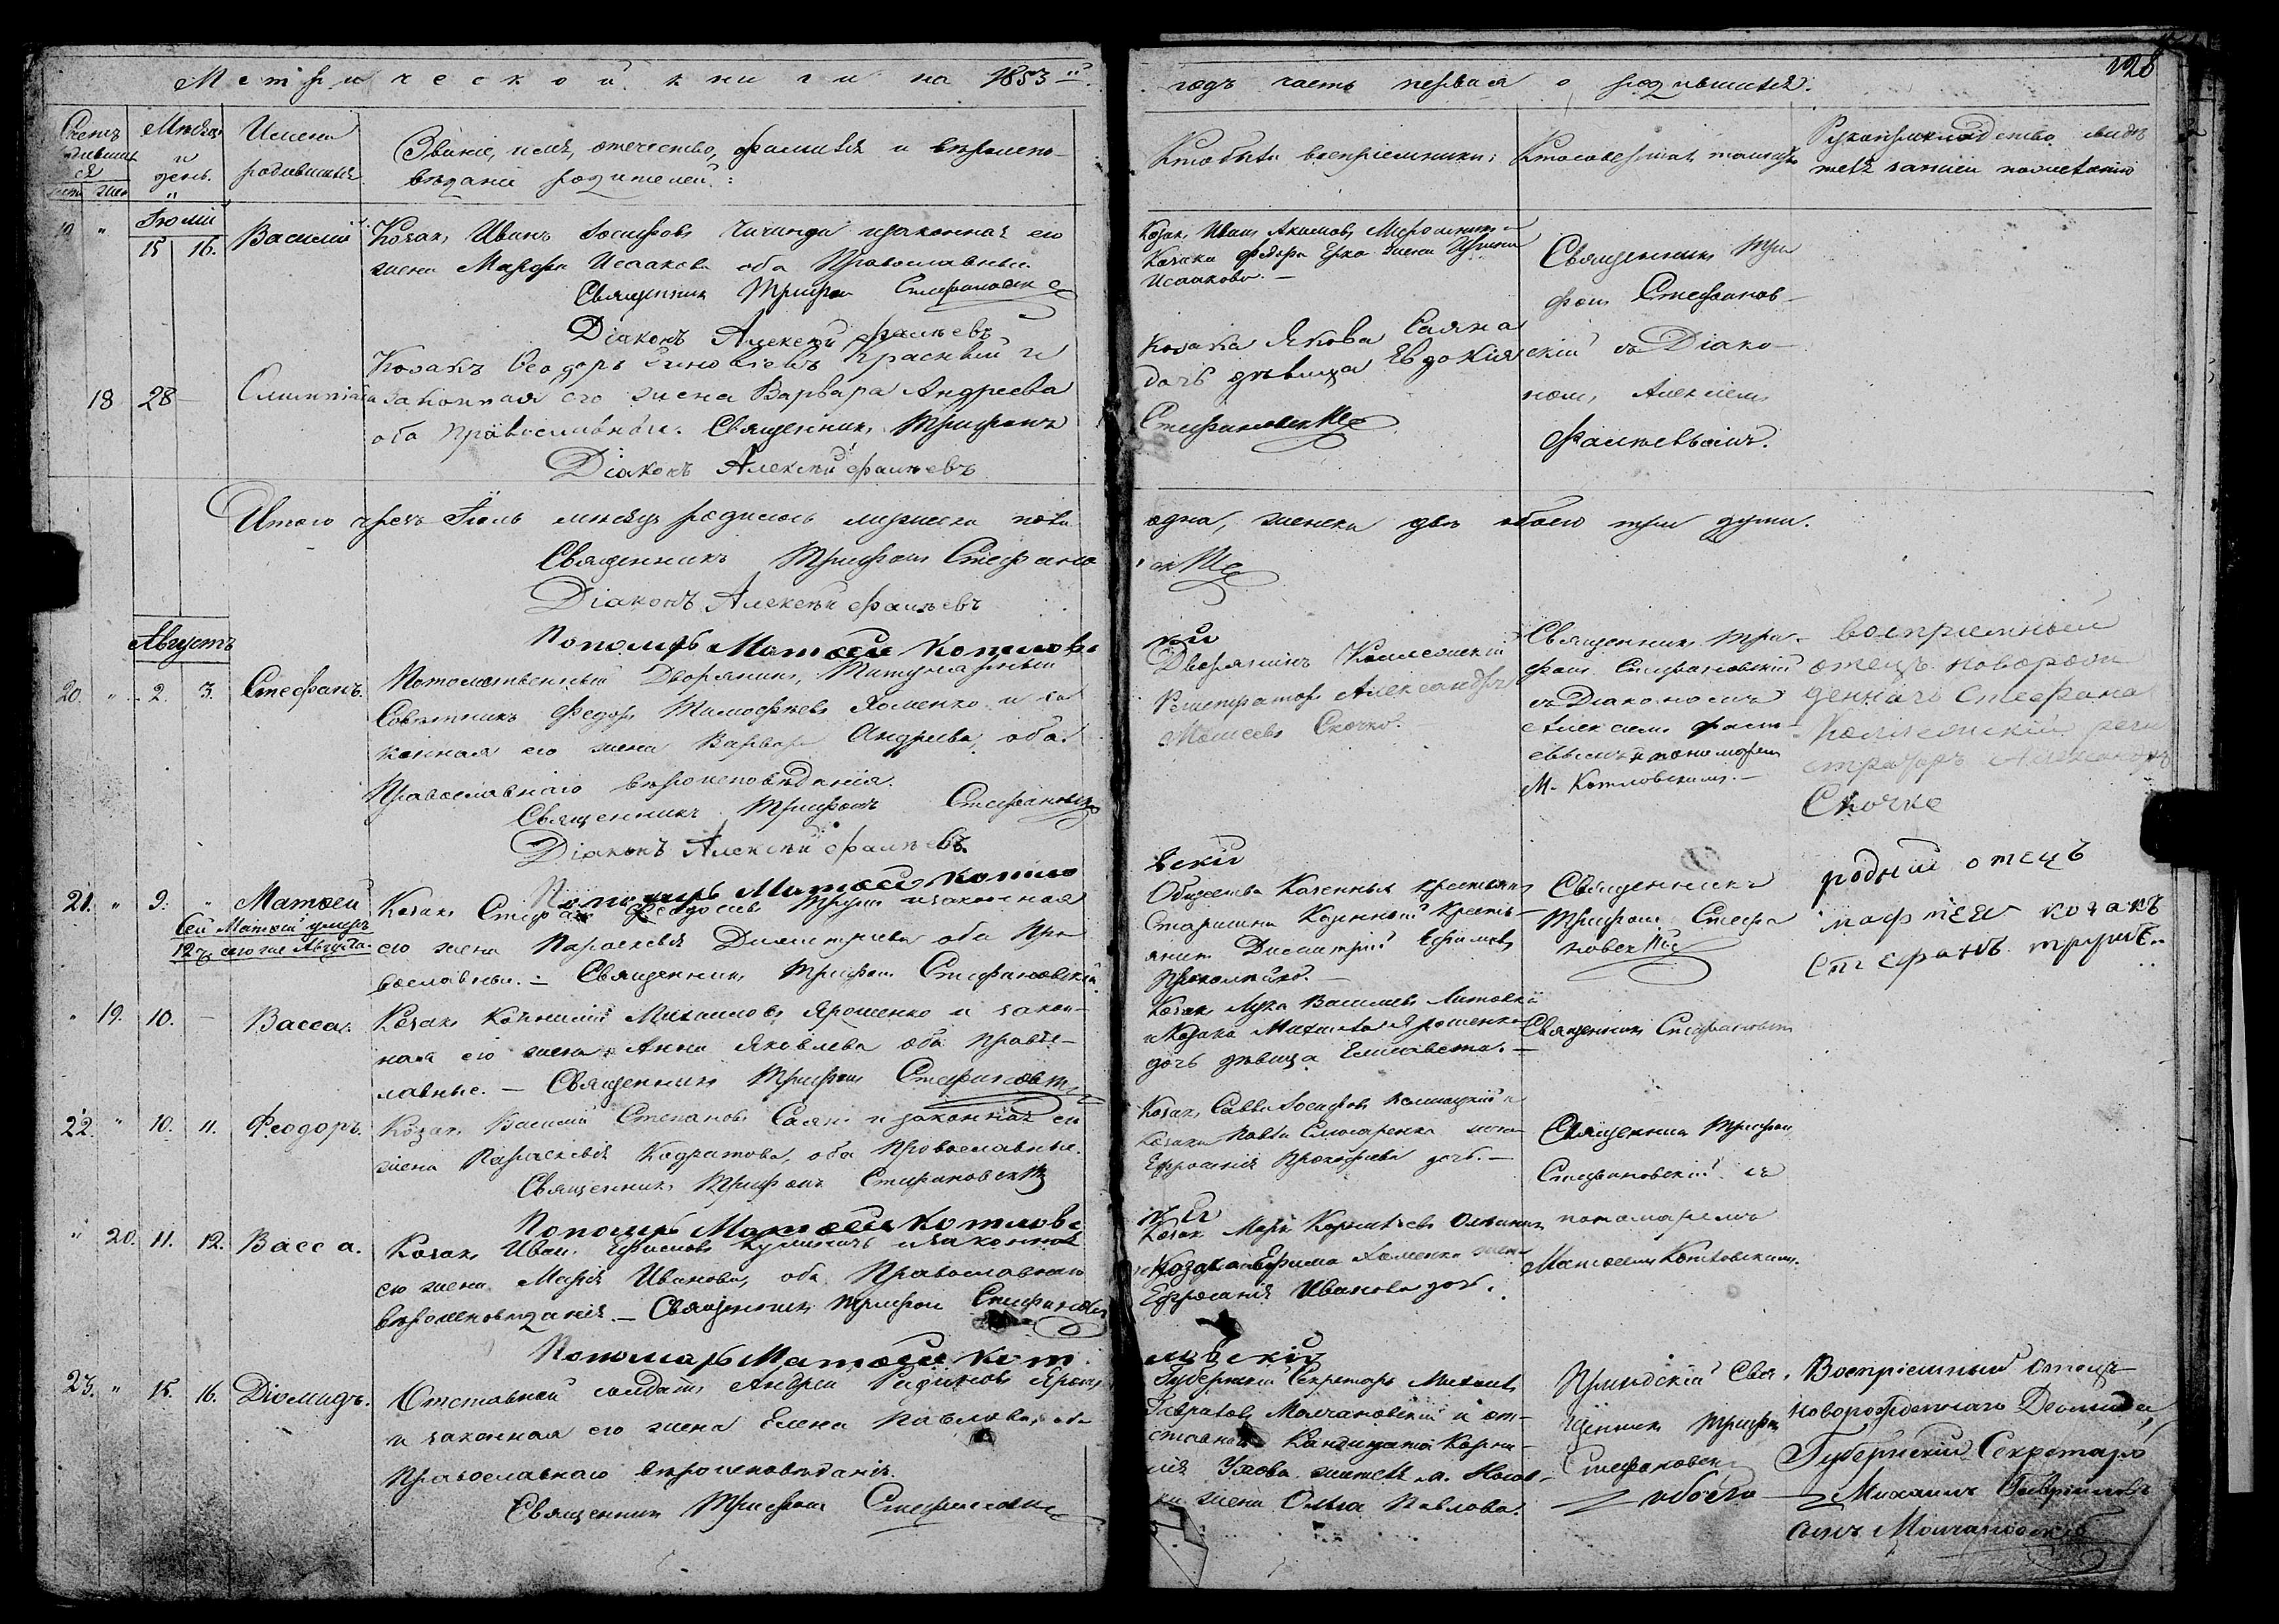 Метрической книги на 1853й
годъ часть первая о родившихся.
128
Счетъ родившихся
Мѣсяцъ и день.
Имена родившихся
Званіе, имя, отечество, фамилія и вѣроиспо-
вѣданіе родителей:
Кто были воспріемники:
Кто совершалъ таинство
Рукоприкладство свидѣ
телей записи по желанію
Іюлій
19 " 15 16. Василій
Козакъ Иванъ Іосифовъ и законная его
жена Марфа Исаакова оба Православные.
Священникъ Трифонъ Стефановскій
Діаконъ Алексѣй
Козакъ Иванъ Акимовъ и
Козака Федора жена Ирина
Исаакова.—
Священникъ Три
фонъ Стефанов-
скій съ Діако-
номъ Алексіемъ
18 28 Олимпіада
Козакъ Ѳеодоръ Зиновіевъ Красный и
законная его жена Варвара Андреева
оба православные. Священникъ Трифонъ
Діаконъ Алексѣй
Козака Якова Саяна
дочь дѣвица Евдокія
Стефановскій
Итого чрезъ Іюль мѣсяцъ родилось мужеска пола
одна, женска двѣ обоего три души.
Священникъ Трифонъ Стефано
вскій
Діаконъ Алексѣй
Пономарь Матѳей Котловс
кій
Августъ
20. " 2. 3. Стефанъ.
Потомственный Дворянинъ, Титулярный
Совѣтникъ Федоръ Тимофѣевъ Хоменко и за
конная его жена Варвара Андреева, оба
Православнаго вѣроисповѣданія.
Священникъ Трифонъ Стефановскій
Діаконъ Алексѣй
Дворянинъ Коллежскій
Регистраторъ Александръ
Моисеевъ Скочко.
Священникъ Три-
фонъ Стефановскій
съ Діакономъ
Алексіемъ
и пономаремъ
М. Котловскимъ.—
воспріемный
отецъ новорож
деннаго Стефана
Коллежскій реги
страторъ Александръ
Скочко
Пономарь Матѳей Котло
вскій
21. " 9. " Матѳей
Сей Матѳей умеръ
12го сего же Августа.
Козакъ Стефанъ Ѳеодосіевъ и законная
его жена Параскевія Димитріева оба Пра
вославные.— Священникъ Трифонъ Стефановскій.
Общества Казенныхъ крестьянъ
Старшина Казенный Крестья-
нинъ Димитрій Ефимовъ
Священникъ
Трифонъ Стефа
новскій
родный отецъ
матѳея козакъ
Стефанъ
" 19. 10. — Васса.
Козакъ Корнилій Михаиловъ Ярошенко и закон-
ная его жена Анна Яковлева оба правос-
лавные.— Священникъ Трифонъ Стефановскій
Козакъ Лука Василіевъ
и Козака Михаила Ярошенка
дочь дѣвица Елисавета.—
Священникъ Стефановскій
22. " 10. 11. Ѳеодоръ.
Козакъ Василій Степановъ Саянъ и законная его
жена Параскевія Кодратова, оба Православные.
Священникъ Трифонъ Стефановскій
Козакъ Савва Іосифовъ и
Козака Павла Слюсаренка жена
Ефросинія Прокофіева дочь.—
Священникъ Трифонъ
Стефановскій съ
пономаремъ
Матѳеемъ Котловскимъ.
Пономарь Матѳей Котловс
кій
" 20. 11. 12. Васса.
Козакъ Иванъ Ефимовъ и законная
его жена Марія Иванова, оба Православнаго
вѣроисповѣданія.— Священникъ Трифонъ Стефановскій
Козакъ Маркъ
и Козака Ефима Хоменка жена
Ефросинія Иванова дочь.
Пономарь Матѳей Кот
ловскій
23. " 15. 16. Діомидъ.
Отставной солдатъ Андрей
и законная его жена Елена Павлова, оба
Православнаго вѣроисповѣданія.
Священникъ Трифонъ Стефановскій
Губернскій Секретарь Михаилъ
Гавриловъ Молчановскій и от-
ставнаго
жена Ольга Павлова.
Приходскій Свя-
щенникъ Трифонъ
Стефановскій
Воспріемный Отецъ
новорожденнаго Діомида,
Губернскій Секретарь
Михаилъ Гавриловъ
сынъ Молчановскій